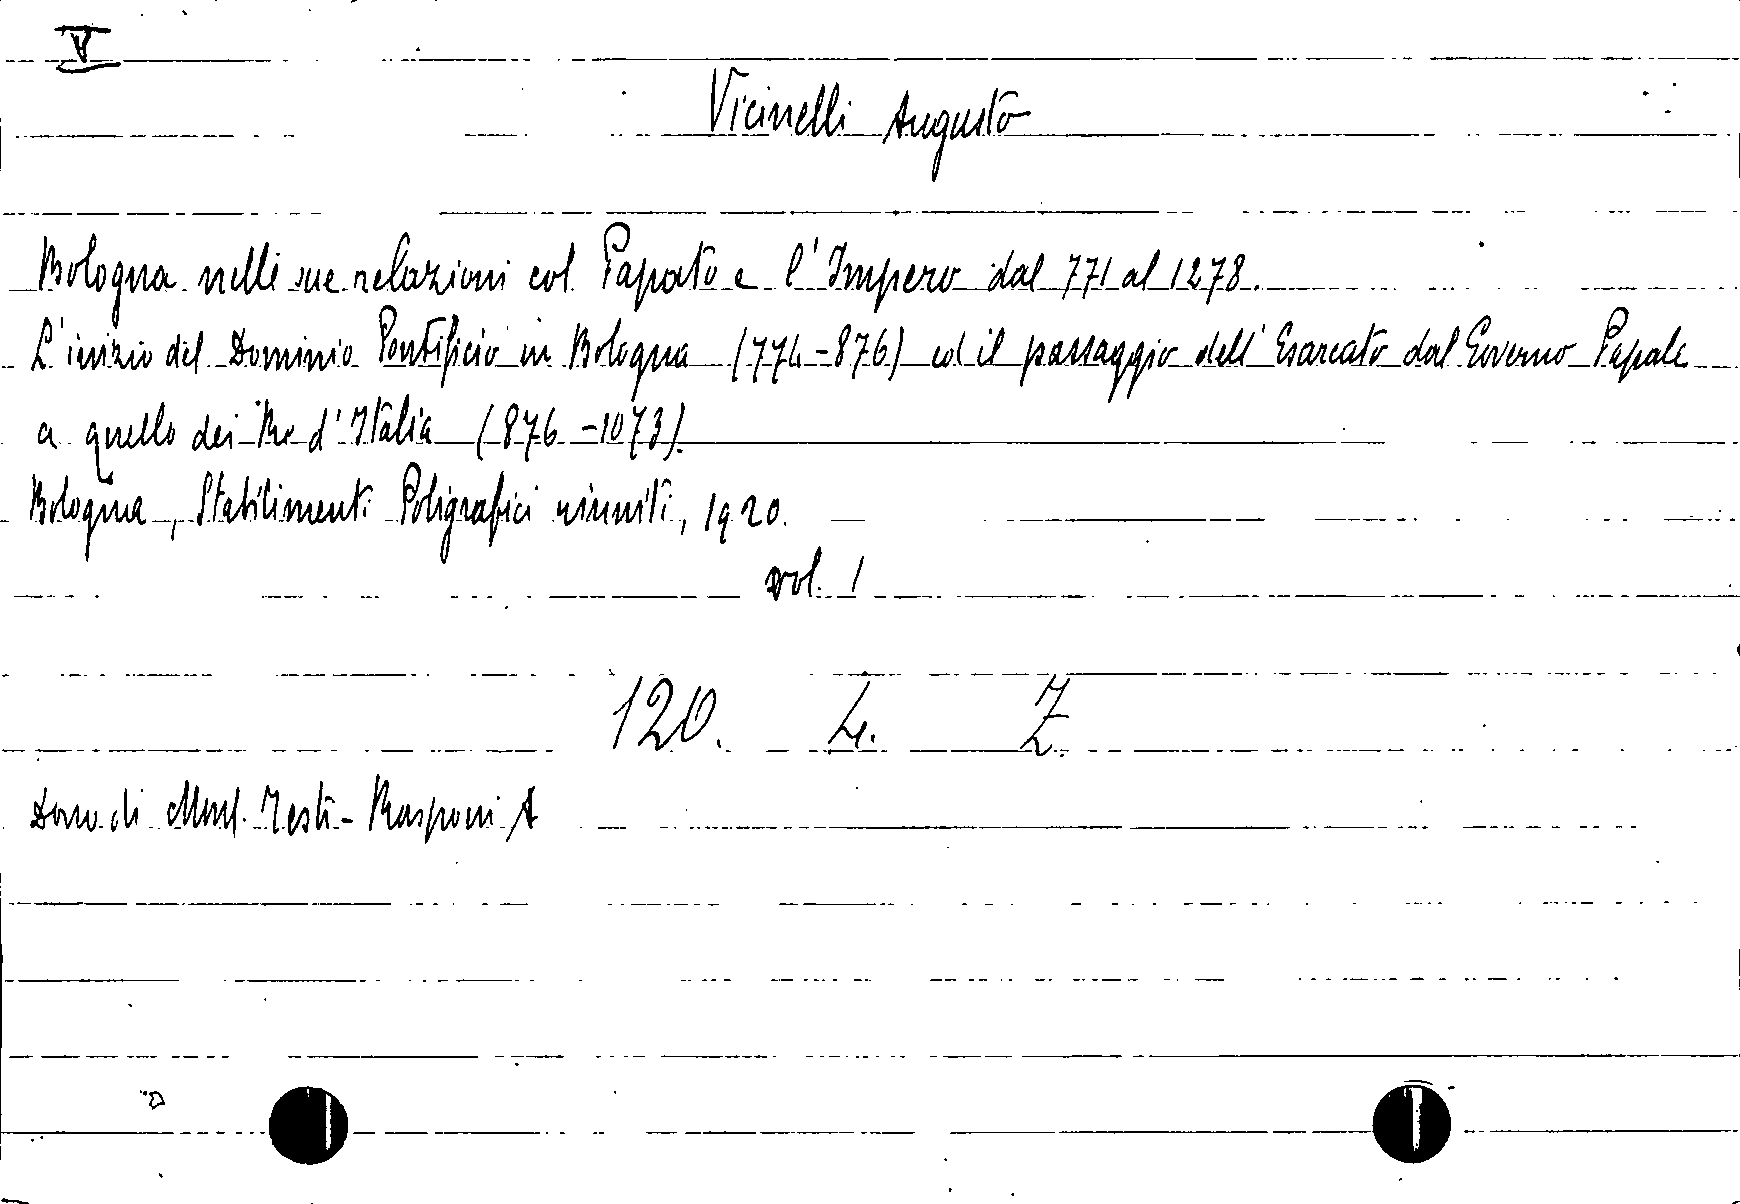 V
Vicinelli Augusto
Bologna nelle sue relazioni col Papato e l'Impero dal 771 al 1278.
L'inizio del Dominio Pontificio in Bologna (774-876) ed il passaggio dell'Esarcato dal Governo Papale
a quello dei Re d'Italia (876-1073).
Bologna, Stabilimenti Poligrafici riuniti, 1920.
vol. 1
120. L.
Dono di Mons. Testi-Rasponi A